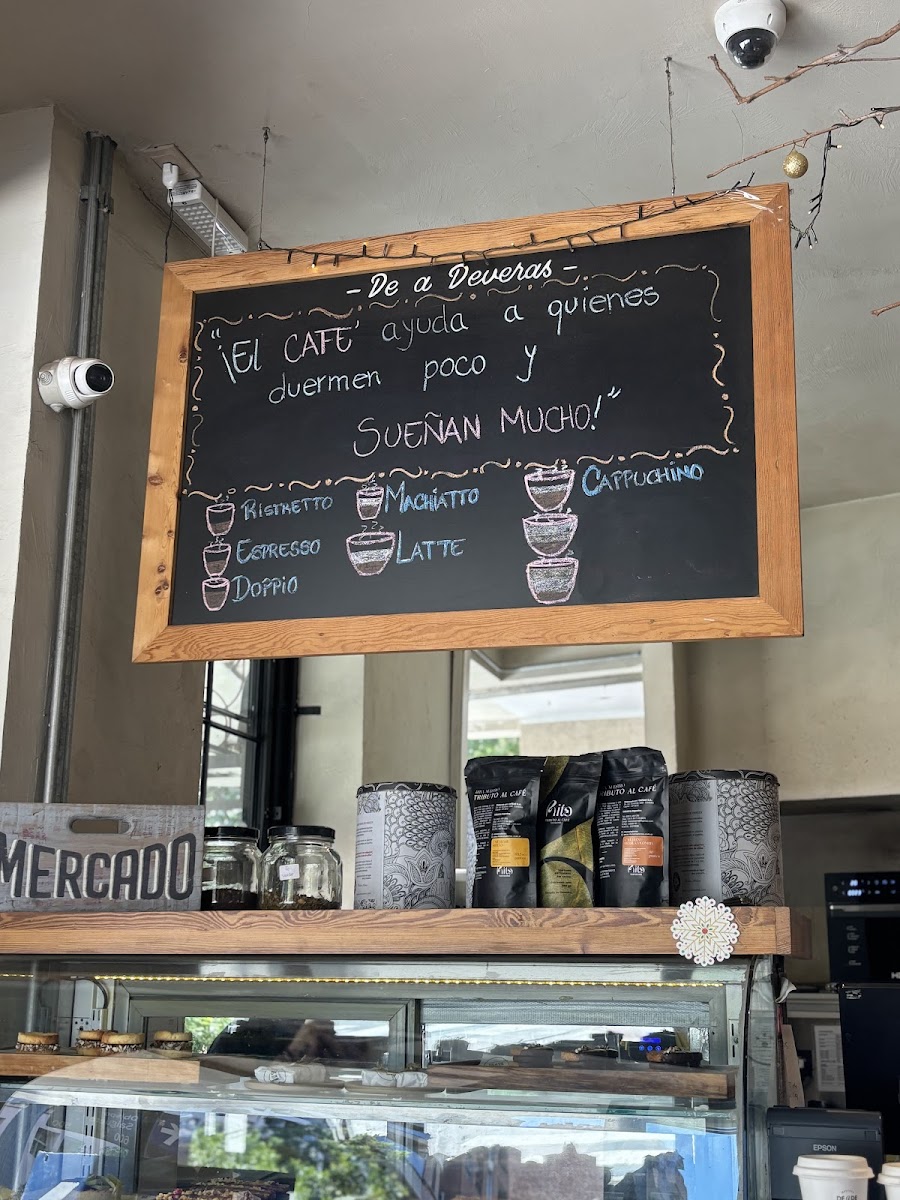 - De a Deveras -
"¡El CAFE' ayuda a quienes
duermen poco y
SUEÑAN MUCHO!"
RISTRETTO
ESPRESSO
DOPPIO
MACHIATTO
LATTE
CAPPUCHINO
MERCADO
TRIBUTO AL CAFÉ
TRIBUTO AL CAFÉ
EPSON